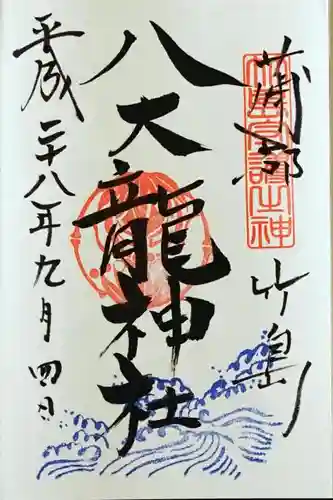 蒲郡
竹島
八大龍神社
平成二十八年九月四日